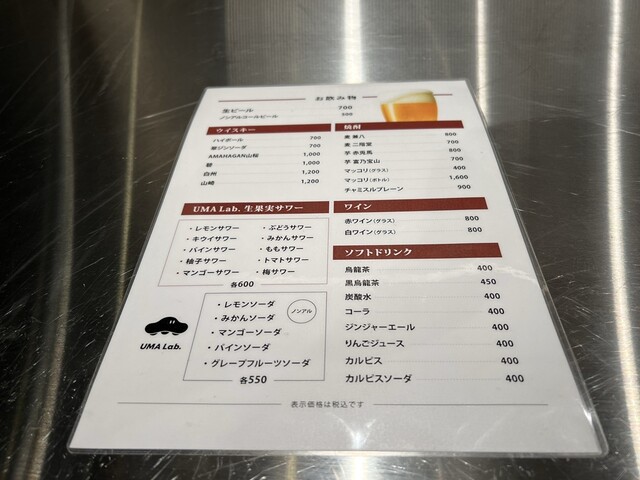 お飲み物
生ビール 700
ノンアルコールビール 500
ウイスキー
ハイボール 700
翠ジンソーダ 700
AMAHAGAN山桜 1,000
碧 1,000
白州 1,200
山崎 1,200
焼酎
麦 兼八 800
麦 二階堂 700
芋 赤兎馬 800
芋 富乃宝山 700
マッコリ(グラス) 400
マッコリ(ボトル) 1,600
チャミスルプレーン 900
UMA Lab. 生果実サワー
・レモンサワー ・ぶどうサワー
・キウイサワー ・みかんサワー
・パインサワー ・ももサワー
・柚子サワー ・トマトサワー
・マンゴーサワー ・梅サワー
各600
ワイン
赤ワイン(グラス) 800
白ワイン(グラス) 800
ソフトドリンク
烏龍茶 400
黒烏龍茶 450
炭酸水 400
コーラ 400
ジンジャーエール 400
りんごジュース 400
カルピス 400
カルピスソーダ 400
UMA Lab.
ノンアル
・レモンソーダ
・みかんソーダ
・マンゴーソーダ
・パインソーダ
・グレープフルーツソーダ
各550
表示価格は税込です